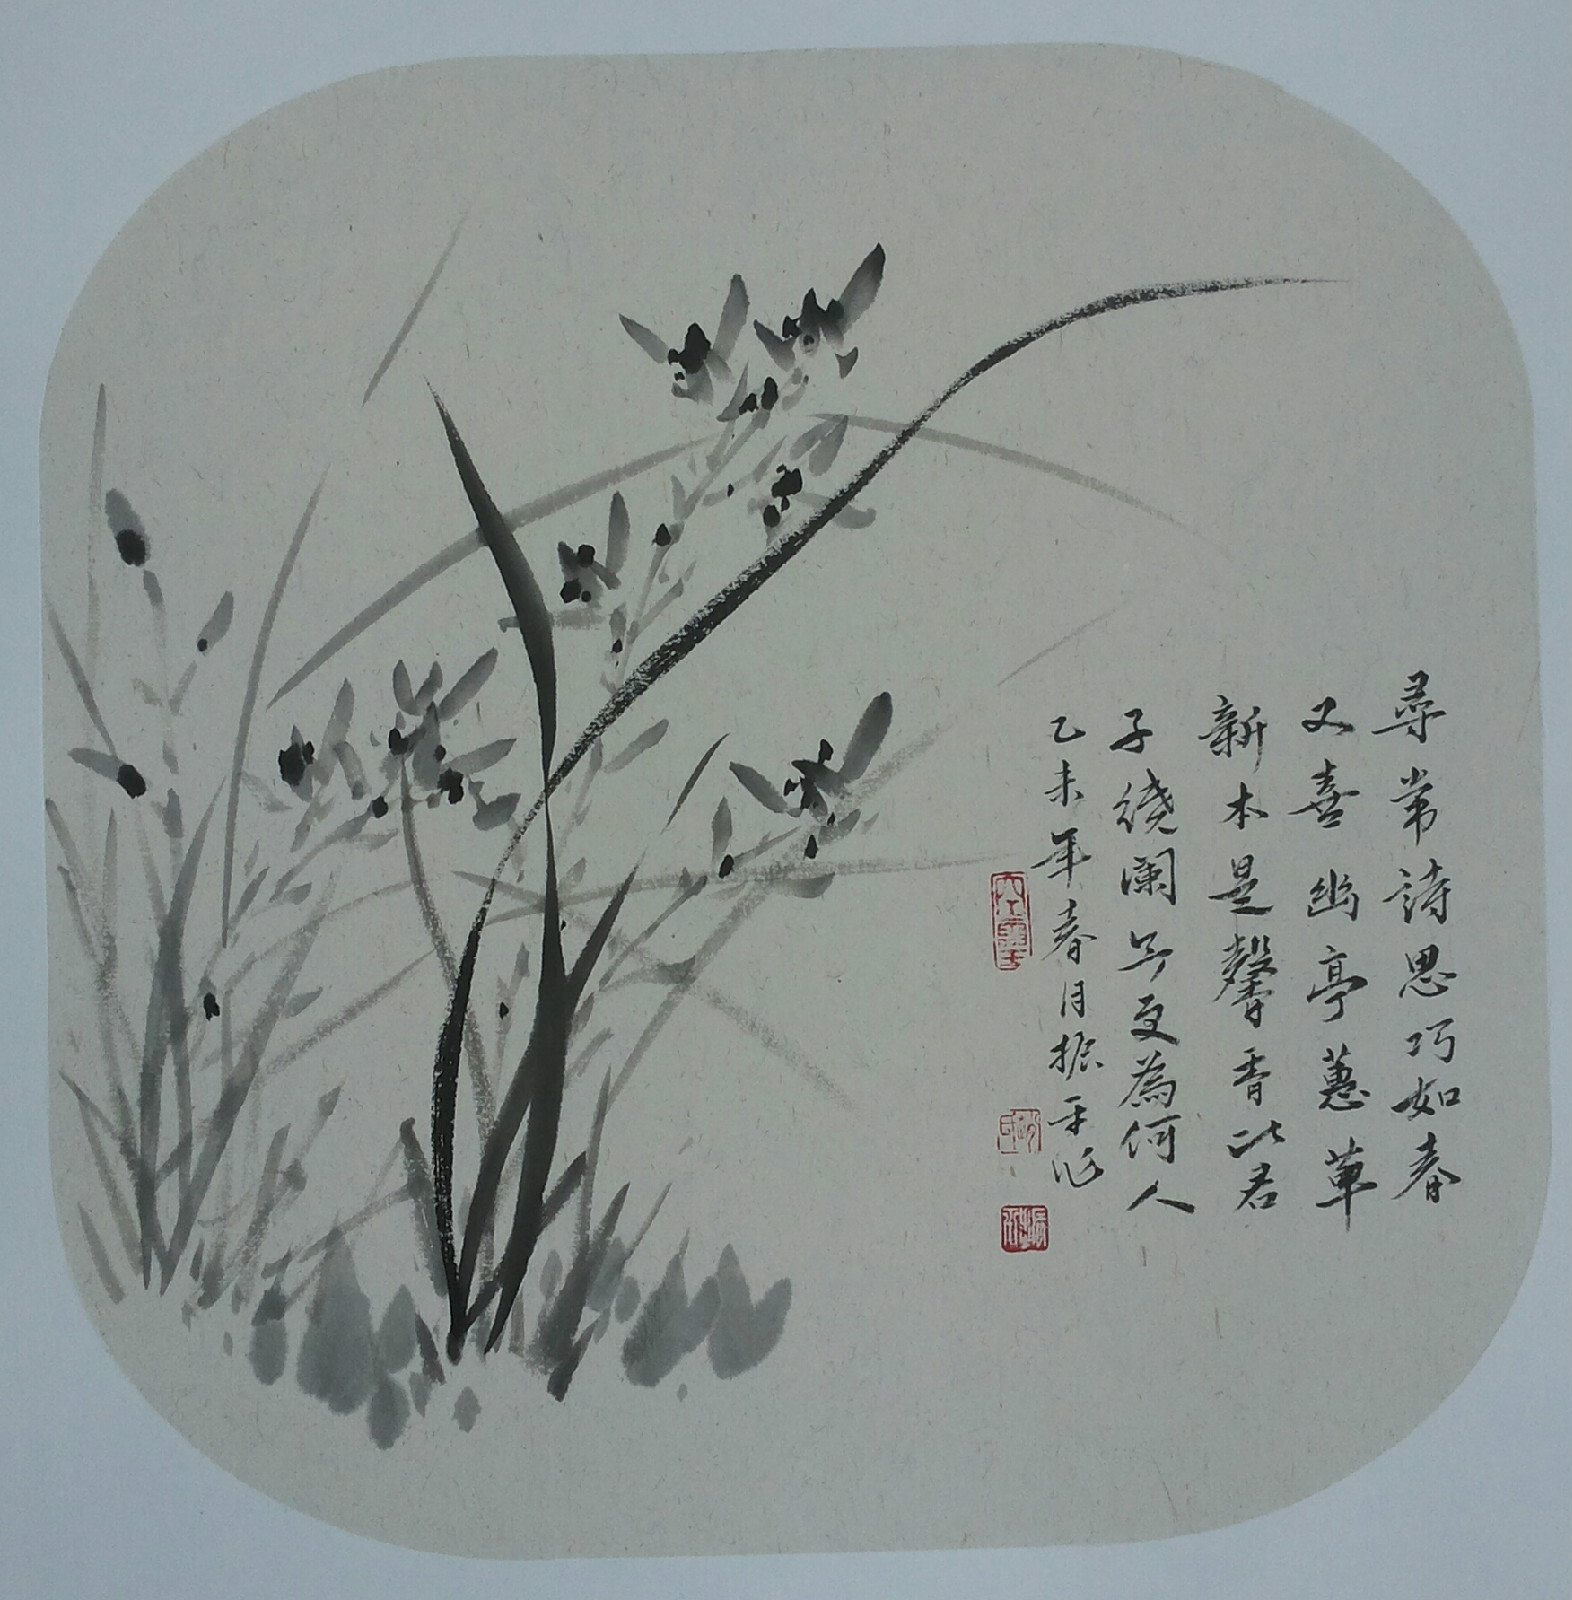 尋常詩思巧如春
又喜幽亭蕙草
新本是馨香比君
子繞闌今更為何人
乙未年春月振平作